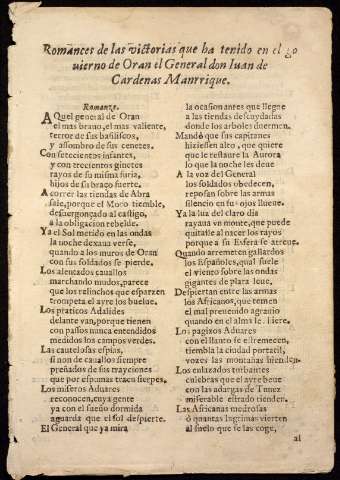 Romances de las victorias que ha tenido en el go
uierno de Oran el General don Iuan de
Cardenas Manrrique.
Romanze.
AQuel general de Oran
el mas brauo, el mas valiente,
terror de sus basiliscos,
y assombro de sus cenetes.
Con setecientos infantes,
y con trecientos ginetes
rayos de su misma furia,
hijos de su braço fuerte.
A correr las tiendas de Abra
sale, porque el Moro tiemble,
desuergonçado al castigo,
a la obligacion rebelde.
Ya el Sol metido en las ondas
la noche dexaua verse,
quando a los muros de Oran
con sus soldados se pierde.
Los alentados cauallos
marchando mudos, parece
que los relinchos que esparzen
trompeta el ayre los buelue.
Los praticos Adalides
delante van, porque tienen
con passos nunca entendidos
medidos los campos verdes.
Las cautelosas espias,
si non de cauallos siempre
preñados de sus trayciones
que por espumas traen sierpes.
Los miseros Aduares
reconocen, cuya gente
ya con el sueño dormida
aguarda que el sol despierte.
El General que ya mira
la ocasion antes que llegue
a las tiendas descuydadas
donde los arboles duermen.
Mandò que sus capitanes
hiziessen alto, que quiere
que le restaure la Aurora
lo que la noche les deue
A la voz del General
los soldados obedecen,
reposan sobre las armas
silencio en sus ojos llueue.
Ya la luz del claro dia
rayaua vn monte, que puede
quitalle al nacer los rayos
porque a su Esfera se atreue.
Quando arremeten gallardos
los Españoles, qual suele
el viento sobre las ondas
gigantes de plata leue.
Despiertan entre las armas
los Africanos, que temen
el mal preuenido agrauio
quando en el alma les hiere.
Los pagizos Aduares
con el llanto se estremecen,
tiembla la ciudad portatil,
vozes las montañas bienden.
Los enlazados turbantes
culebras que al ayre beue
con las adargas de Tunez
miserable estrado tienden.
Las Africanas medrosas
ò quantas lagrimas vierten
al suelo que se las coge,
al